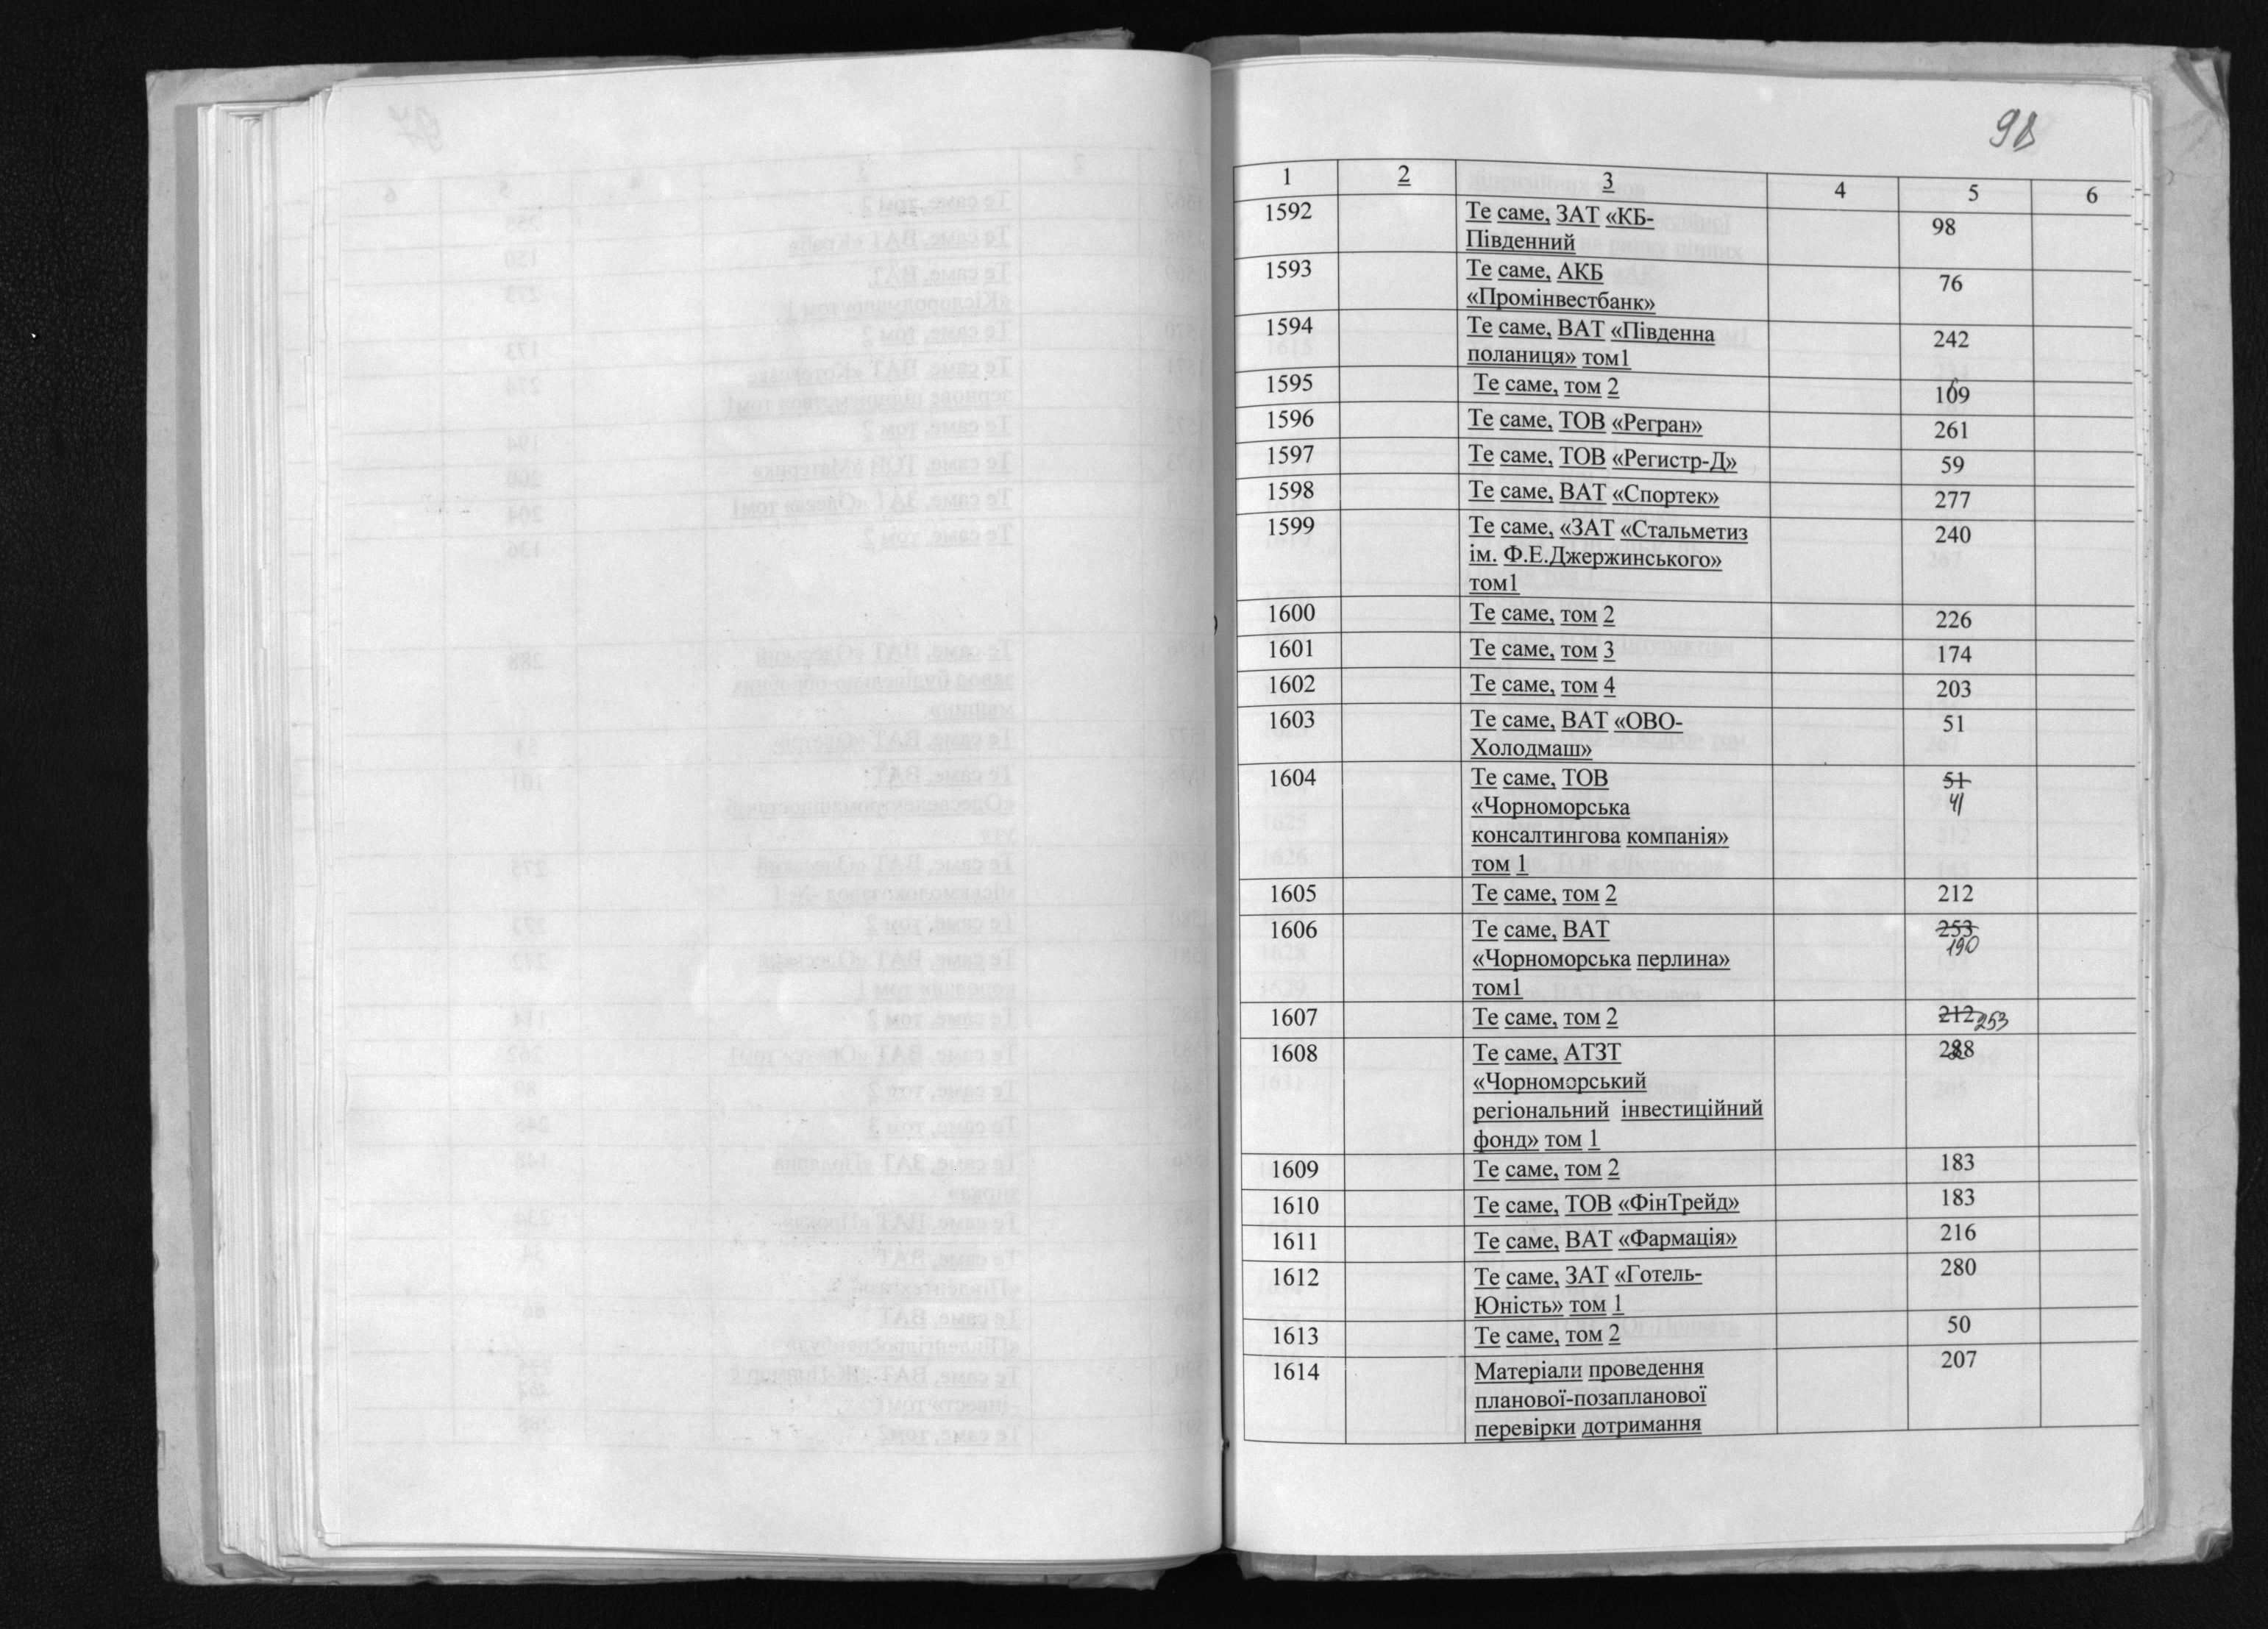 98
1 2 3 4 5 6
1592 Те саме, ЗАТ «КБ- 98
Південний
1593 Те саме, АКБ 76
«Промінвестбанк»
1594 Те саме, ВАТ «Південна 242
поланиця» том1
1595 Те саме, том 2
1596 Те саме, ТОВ «Регран» 261
1597 Те саме, ТОВ «Регистр-Д» 59
1598 Те саме, ВАТ «Спортек» 277
1599 Те саме, «ЗАТ «Стальметиз 240
ім. Ф.Е.Джержинського»
том1
1600 Те саме, том 2 226
1601 Те саме, том 3 174
1602 Те саме, том 4 203
1603 Те саме, ВАТ «ОВО- 51
Холодмаш»
1604 Те саме, ТОВ 51
«Чорноморська 41
консалтингова компанія»
том 1
1605 Те саме, том 2 212
1606 Те саме, ВАТ 253
«Чорноморська перлина» 190
том1
1607 Те саме, том 2 212 253
1608 Те саме, АТЗТ
«Чорноморський
регіональний інвестиційний
фонд» том 1
1609 Те саме, том 2 183
1610 Те саме, ТОВ «ФінТрейд» 183
1611 Те саме, ВАТ «Фармація» 216
1612 Те саме, ЗАТ «Готель- 280
Юність» том 1
1613 Те саме, том 2 50
1614 Матеріали проведення 207
планової-позапланової
перевірки дотримання